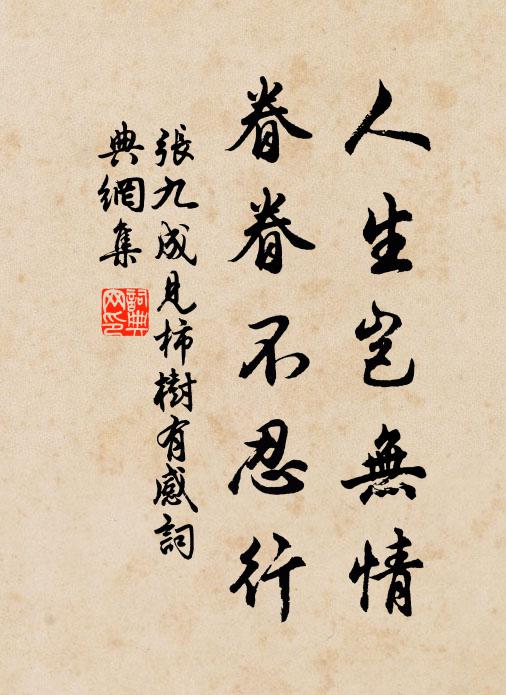 人生岂無情
眷眷不忍行
張九成見柿樹有感詞
典網集
詞典网印